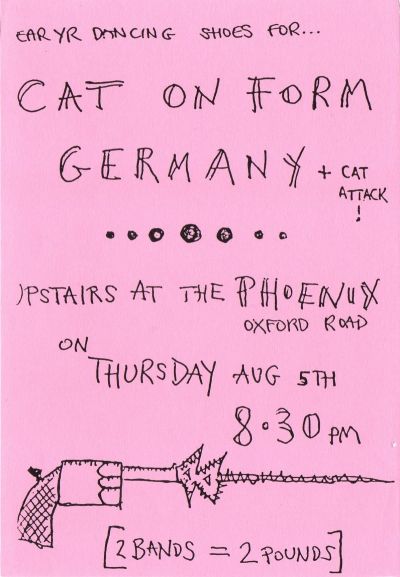 EAR YR DANCING SHOES FOR...
CAT ON FORM
GERMANY + CAT
ATTACK
!
PSTAIRS AT THE PHOENIX
OXFORD ROAD
ON
THURSDAY AUG 5TH
8.30 PM
[2 BANDS = 2 POUNDS]